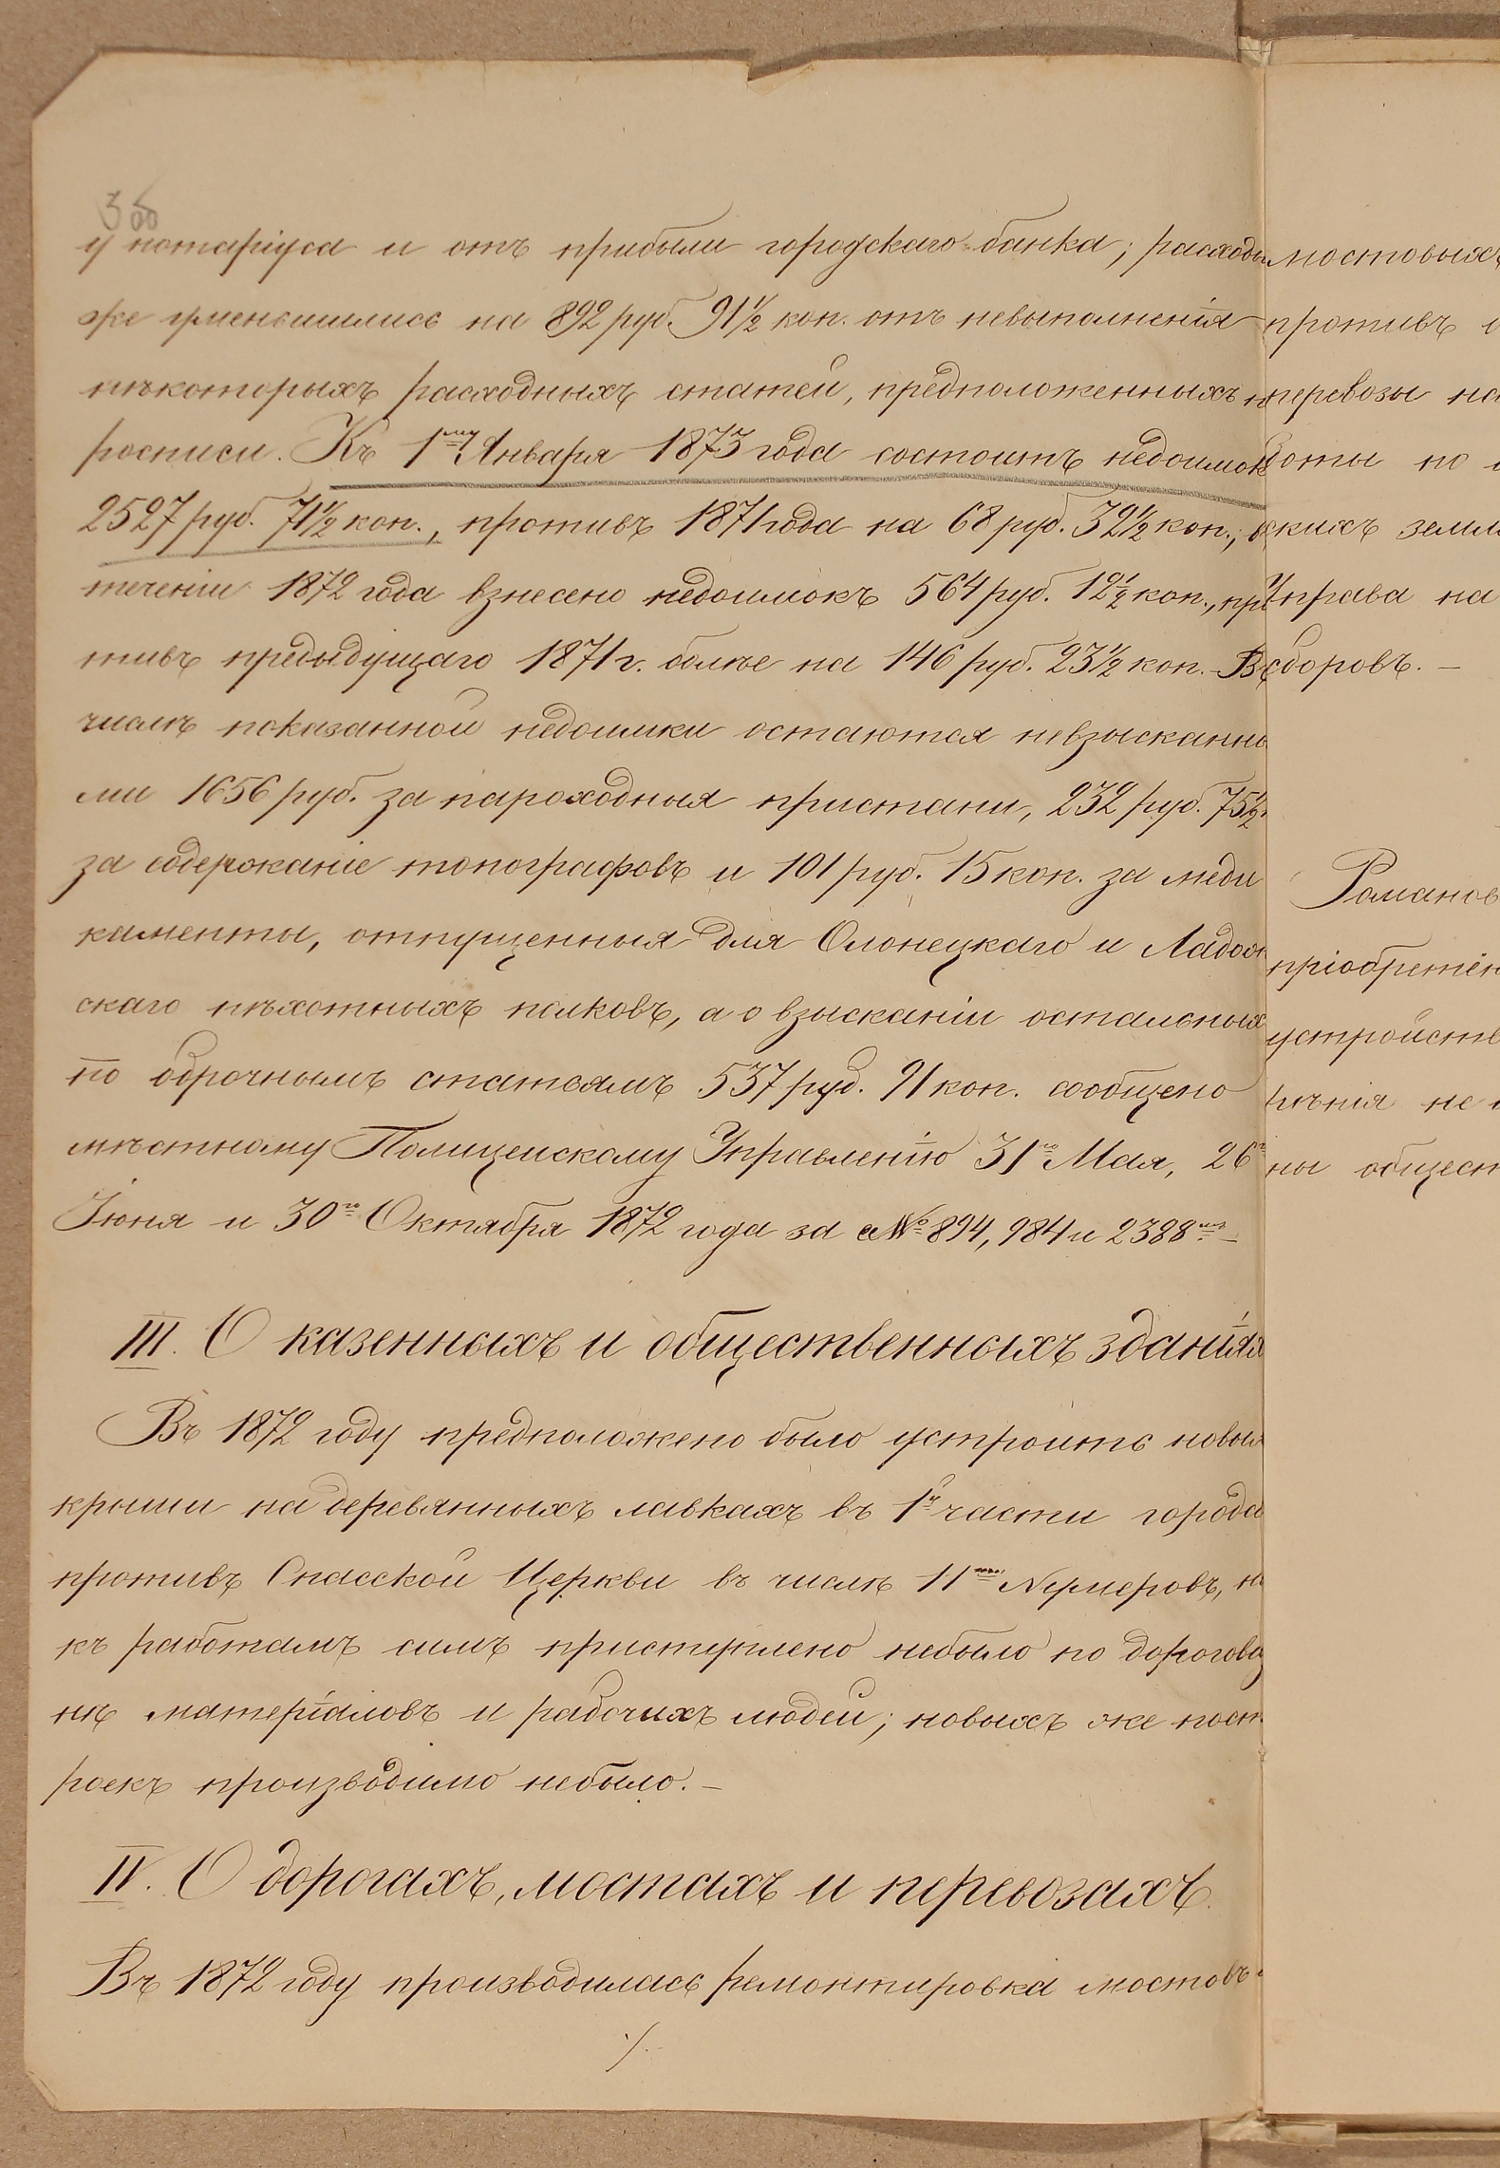 у нотаріуса и отъ прибыли городскаго банка; расходы
же уменьшились на 892 руб. 91½ коп. отъ невыполненія
нѣкоторыхъ расходныхъ статей, предположенныхъ
росписи. Къ 1му Января 1873 года состоитъ недоимок
2527 руб. 71½ коп., противъ 1871 года на 68 руб. 32½ коп., в
теченіи 1872 года взнесено недоимокъ 564 руб. 12½ коп., про
тивъ предыдущаго 1871 г. болѣе на 146 руб. 23½ коп. – Въ
числѣ показанной недоимки остаются невзысканны
ми 1656 руб. за пароходныя пристани, 232 руб. 75½
за содержаніе топографовъ и 101 руб. 15 коп. за меди
каменты, отпущенныя для Олонецкаго и Ладож
скаго пѣхотныхъ полковъ, а о взысканіи остальных
по оброчнымъ статьямъ 537 руб. 91 коп. сообщено
мѣстному Полицейскому Управленію 31го Мая, 26го
Іюня и 30го Октября 1872 года за №№ 894, 984 и 2388мъ –
III. О казенныхъ и общественныхъ зданіях
Въ 1872 году предположено было устроить новыя
крыши на деревянныхъ лавкахъ въ 1й части города
противъ Спасской Церкви въ числѣ 11ти Нумеровъ, н
къ работамъ симъ приступлено небыло по дорогови
нѣ матеріаловъ и рабочихъ людей; новыхъ же пост
роекъ производимо небыло. –
IV. О дорогахъ, мостахъ и перевозахъ.
Въ 1872 году производилась ремонтировка мостовъ
мостовыхъ
противъ
перевозы на
боты по
кихъ земл
Управа на
сборовъ. –
Романов
пріобретен
устройств
рѣнія не
ны общест